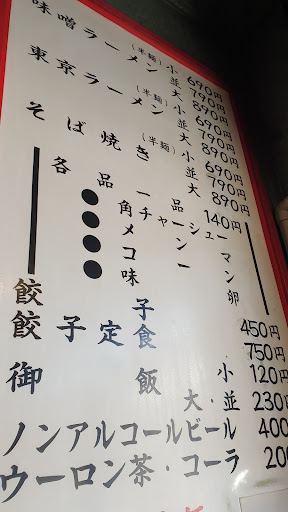 味噌ラーメン (半麺) 小 690円
並 790円
大 890円
東京ラーメン (半麺) 小 690円
並 790円
大 890円
そば焼き (半麺) 小 690円
並 790円
大 890円
各品一品 140円
●角チャーシュー
●メンマ
●コーン
●味卵
餃子 450円
餃子定食 750円
御飯 小 120円
大・並 230円
ノンアルコールビール 400
ウーロン茶・コーラ 200